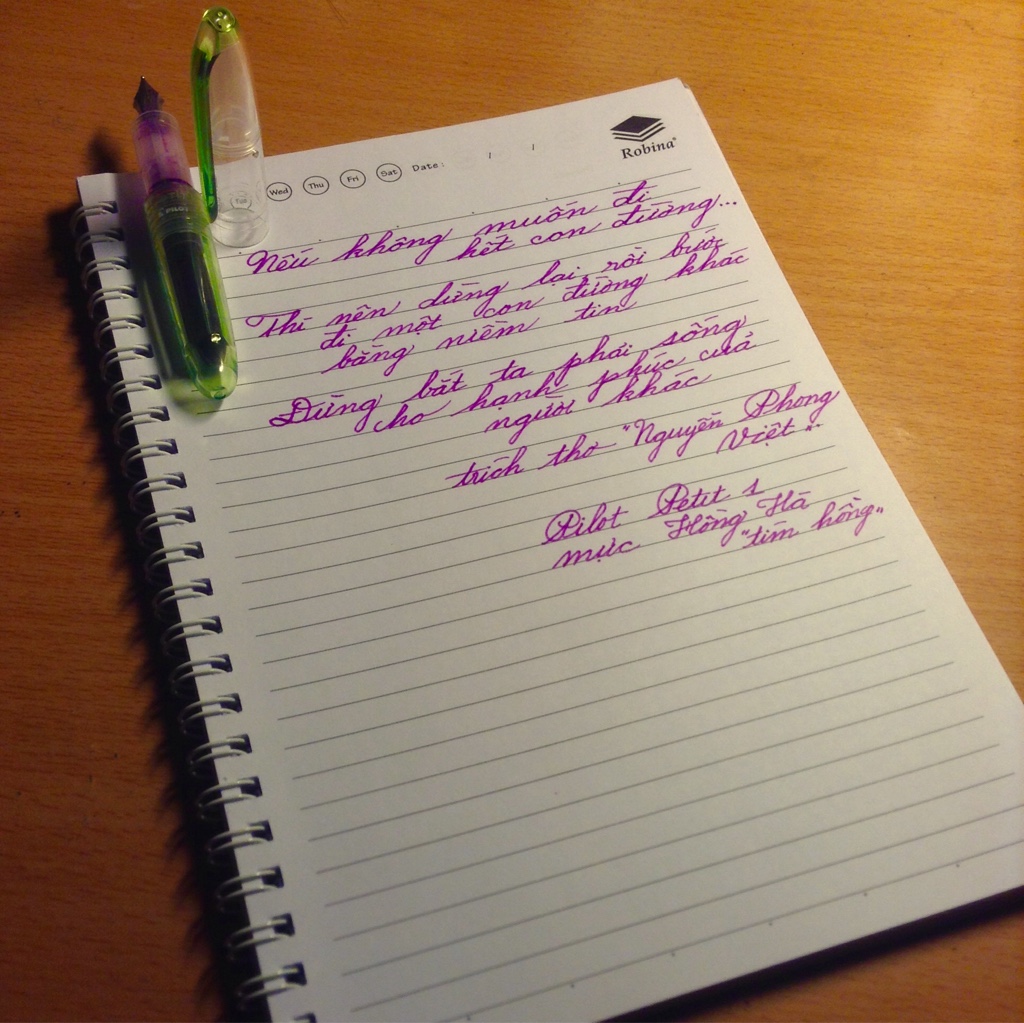 Robina®
Wed Thu Fri Sat Date: / /
Nếu không muốn đi
hết con đường...
Thì nên dừng lại rồi bước
đi một con đường khác
bằng niềm tin
Đừng bắt ta phải sống
cho hạnh phúc của
người khác
trích thơ "Nguyễn Phong
Việt".
Pilot Petit 1
mực Hồng Hà
"tím hồng"
PILOT